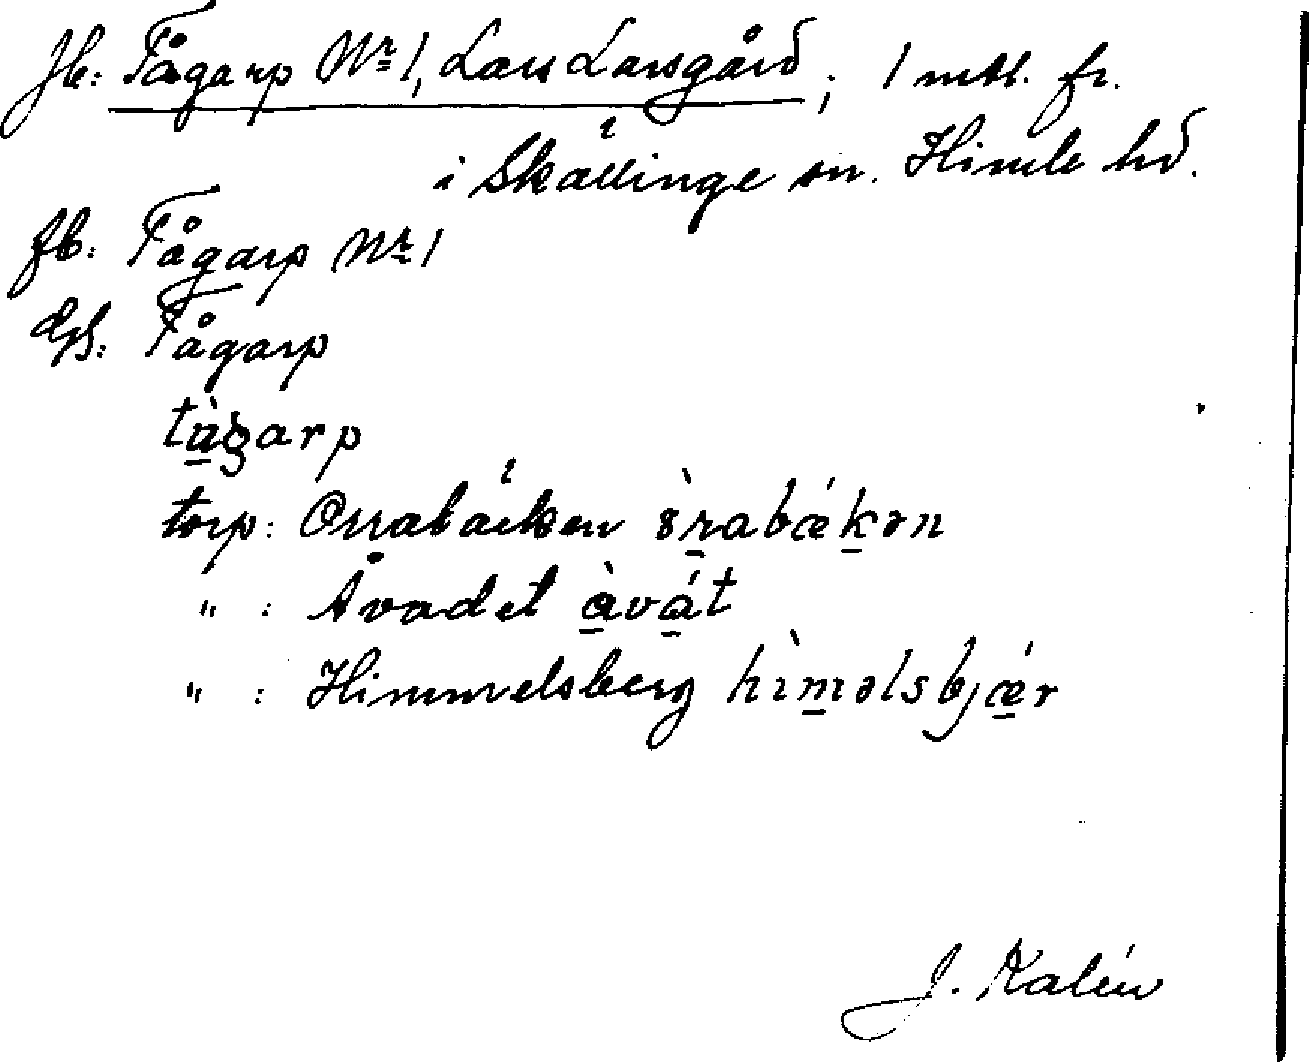 Jb: Tågarp Nr 1, Lars Larsgård; 1 mtl. fr.
i Skällinge sn. Himle hd.
fb: Tågarp Nr 1
Gs: Tågarp
tàgarp
torp: Orrabäcken òrabǽkən
" : Åvadet àvát
" : Himmelsberg hìməlsbjǽr
J. Kalén